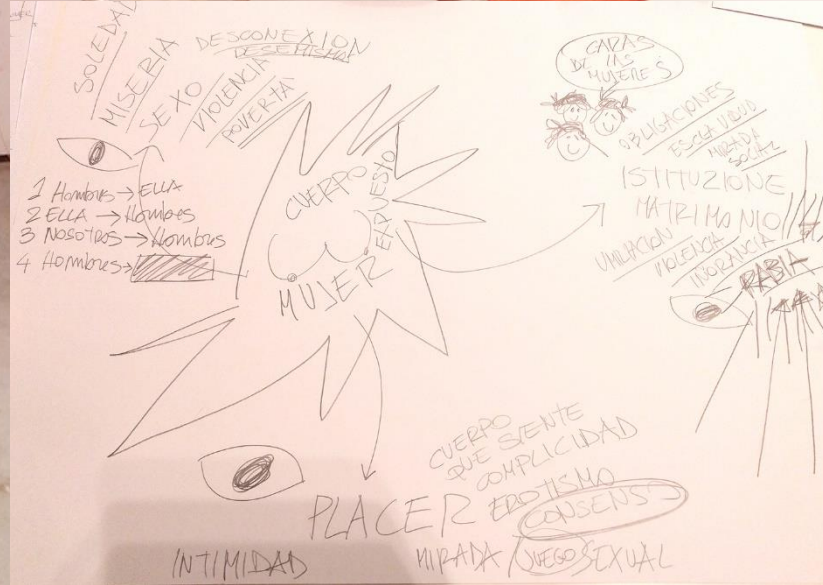 SOLEDAD
MISERIA
SEXO
VIOLENCIA
POVERTA'
DESCONEXION
DESEMISMA
1 Hombres → ELLA
2 ELLA → Hombres
3 NOSOTROS → Hombres
4 Hombres →
CUERPO
EXPUESTO
MUJER
CARAS
DE LAS
MUJERES
OBLIGACIONES
ESCLAVITUD
MIRADA
SOCIAL
ISTITUZIONE
MATRIMONIO
UMILIACION
VIOLENCIA
INORANCIA
RABIA
CUERPO
QUE SIENTE
COMPLICIDAD
EROTISMO
CONSENSO
PLACER
INTIMIDAD
MIRADA JUEGO SEXUAL